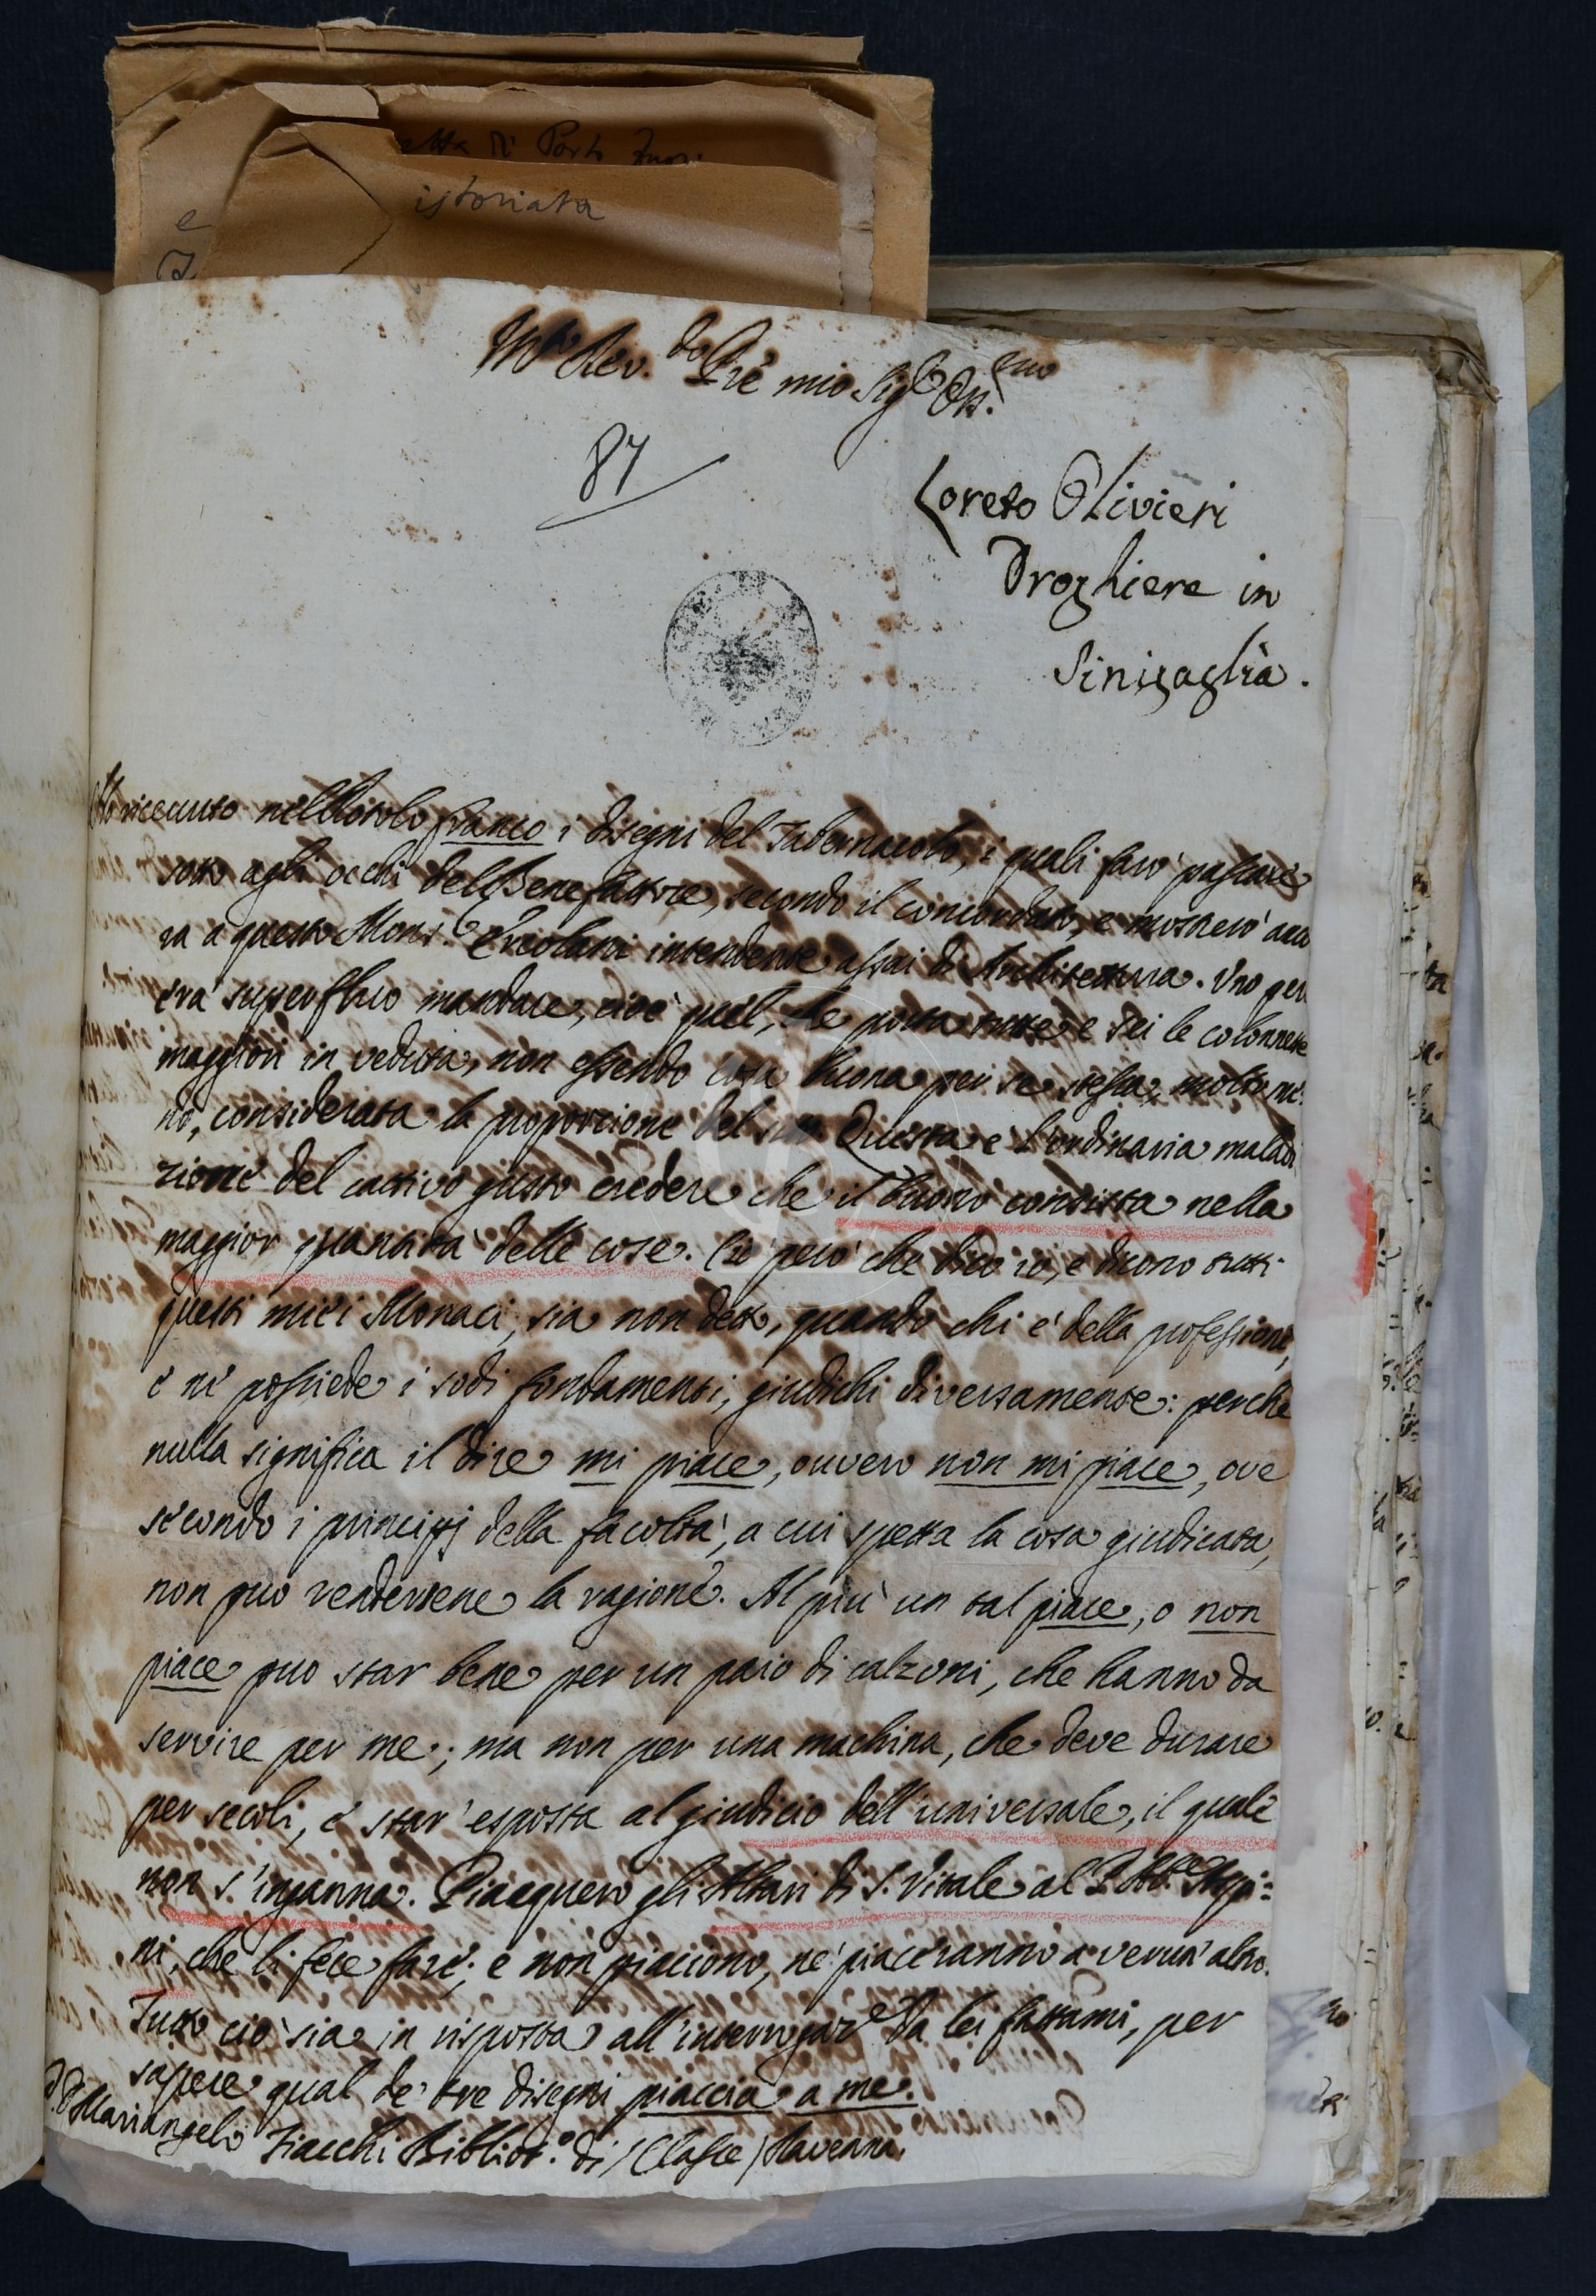 etta di Porto Fuori
istoriata
e
M.to Rev.do P.re mio Sig.r Oss.mo
87
Loreto Olivieri
Droghiere in
Sinigaglia.
Ho ricevuto nel Rotolo franco i disegni del Tabernacolo, i quali farò passare
sotto agli occhi del Benefattore, secondo il concordato, e mostrerò anco
ra a questo Mons.r Ercolani intendente assai di Architettura. Uno però
era superfluo mandare, cioè quel, che porta tutte e sei le colonnette
maggiori in veduta, non essendo cosa buona per se stessa, molto me:
no, considerata la proporzione del sito. Questa è l'ordinaria maladi
zione del cattivo gusto credere che il buono consista nella
maggior quantità delle cose. Ciò però che dico io, e dicono tutti
questi miei Monaci, sia non detto, quando chi è della professione,
e ne possiede i sodi fondamenti, giudichi diversamente: perche
nulla significa il dire mi piace, ouvero non mi piace, ove
secondo i principj della facoltà, a cui spetta la cosa giudicata,
non può rendersene la ragione. Al più un tal piace, o non
piace può star bene per un paio di calzoni, che hanno da
servire per me; ma non per una machina, che deve durare
per secoli, e star' esposta al giudicio dell'universale, il quale
non s'inganna. Piacquero gli Altari di S. Vitale al P. Ab.e
ni, che li fece fare; e non piacciono, ne piaceranno a verun' altro.
Tutto ciò sia in risposta all'interrogaz.e da lei fattami, per
sapere qual de' tre disegni piaccia a me.
P. D. Mariangelo Fiacchi Bibliot.o di Classe Ravenna.